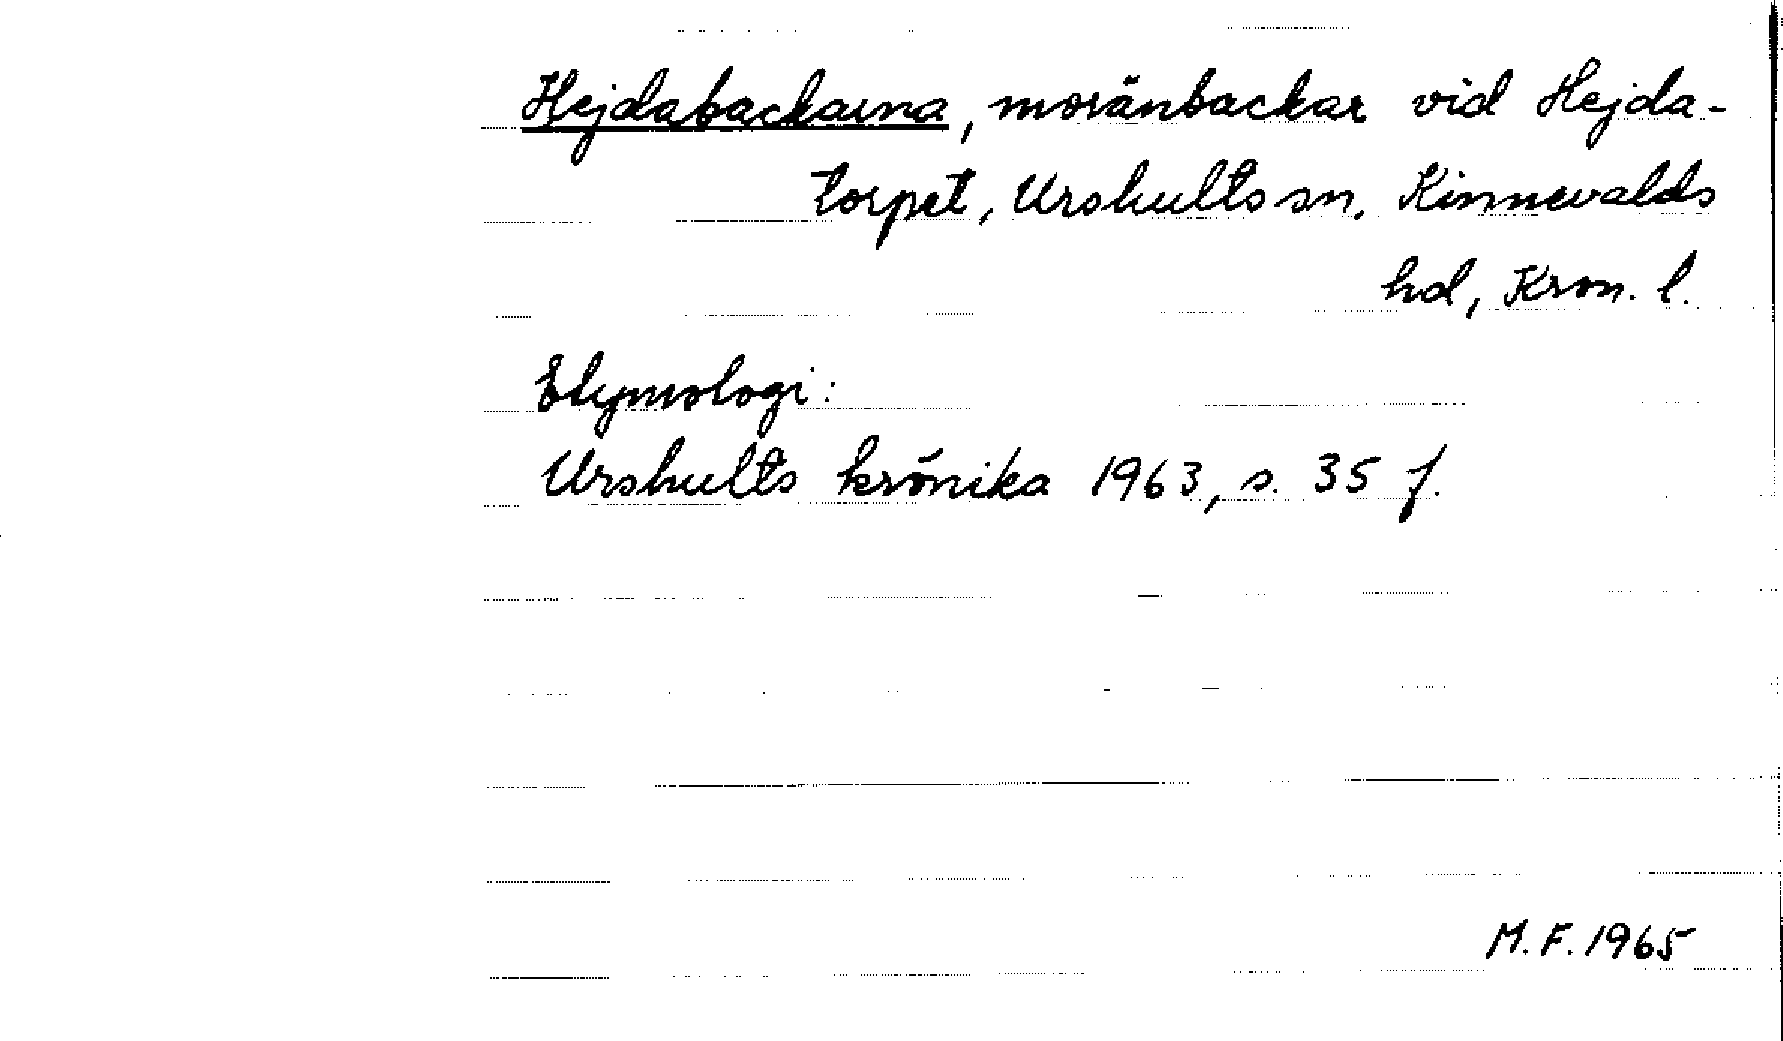 Hejdabackarna, moränbackar vid Hejda-
torpet, Urshults sn. Kinnevalds
hd, Kron. l.
Etymologi:
Urshults krönika 1963, s. 35 f.
M.F. 1965